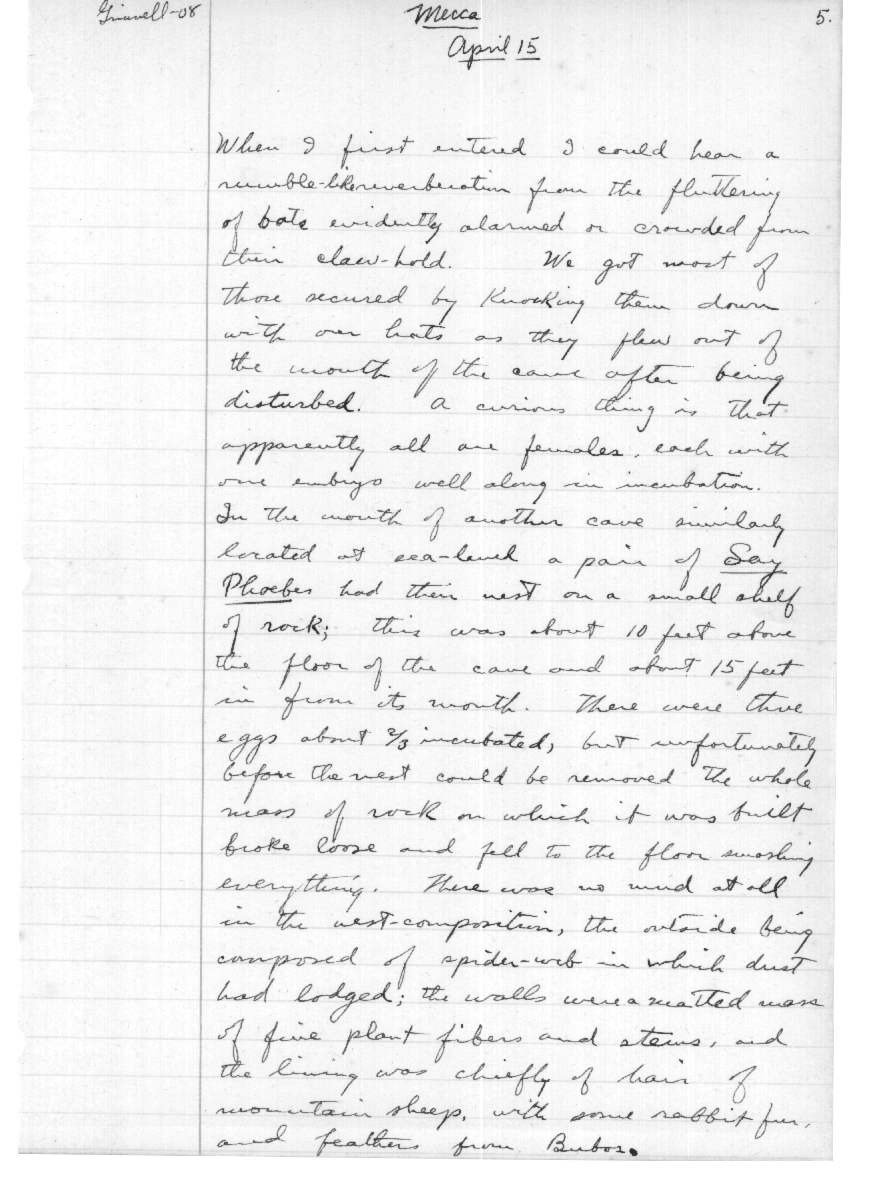 Grinnell-08
Mecca
5.
April 15
When I first entered I could hear a
rumble-like reverberation from the fluttering
of bats evidently alarmed or crowded from
their claw-hold. We got most of
those secured by knocking them down
with our hats as they flew out of
the mouth of the cave after being
disturbed. A curious thing is that
apparently all are females, each with
one embryo well along in incubation.
In the mouth of another cave similarly
located at sea-level a pair of Say
Phoebes had their nest on a small shelf
of rock; this was about 10 feet above
the floor of the cave and about 15 feet
in from its mouth. There were five
eggs about 2/3 incubated, but unfortunately
before the nest could be removed the whole
mass of rock on which it was built
broke loose and fell to the floor smashing
everything. There was no mud at all
in the nest-composition, the outside being
composed of spider-web in which dust
had lodged; the walls were a matted mass
of fine plant fibers and stems, and
the lining was chiefly of hair of
mountain sheep, with some rabbit fur,
and feathers from Bubos.